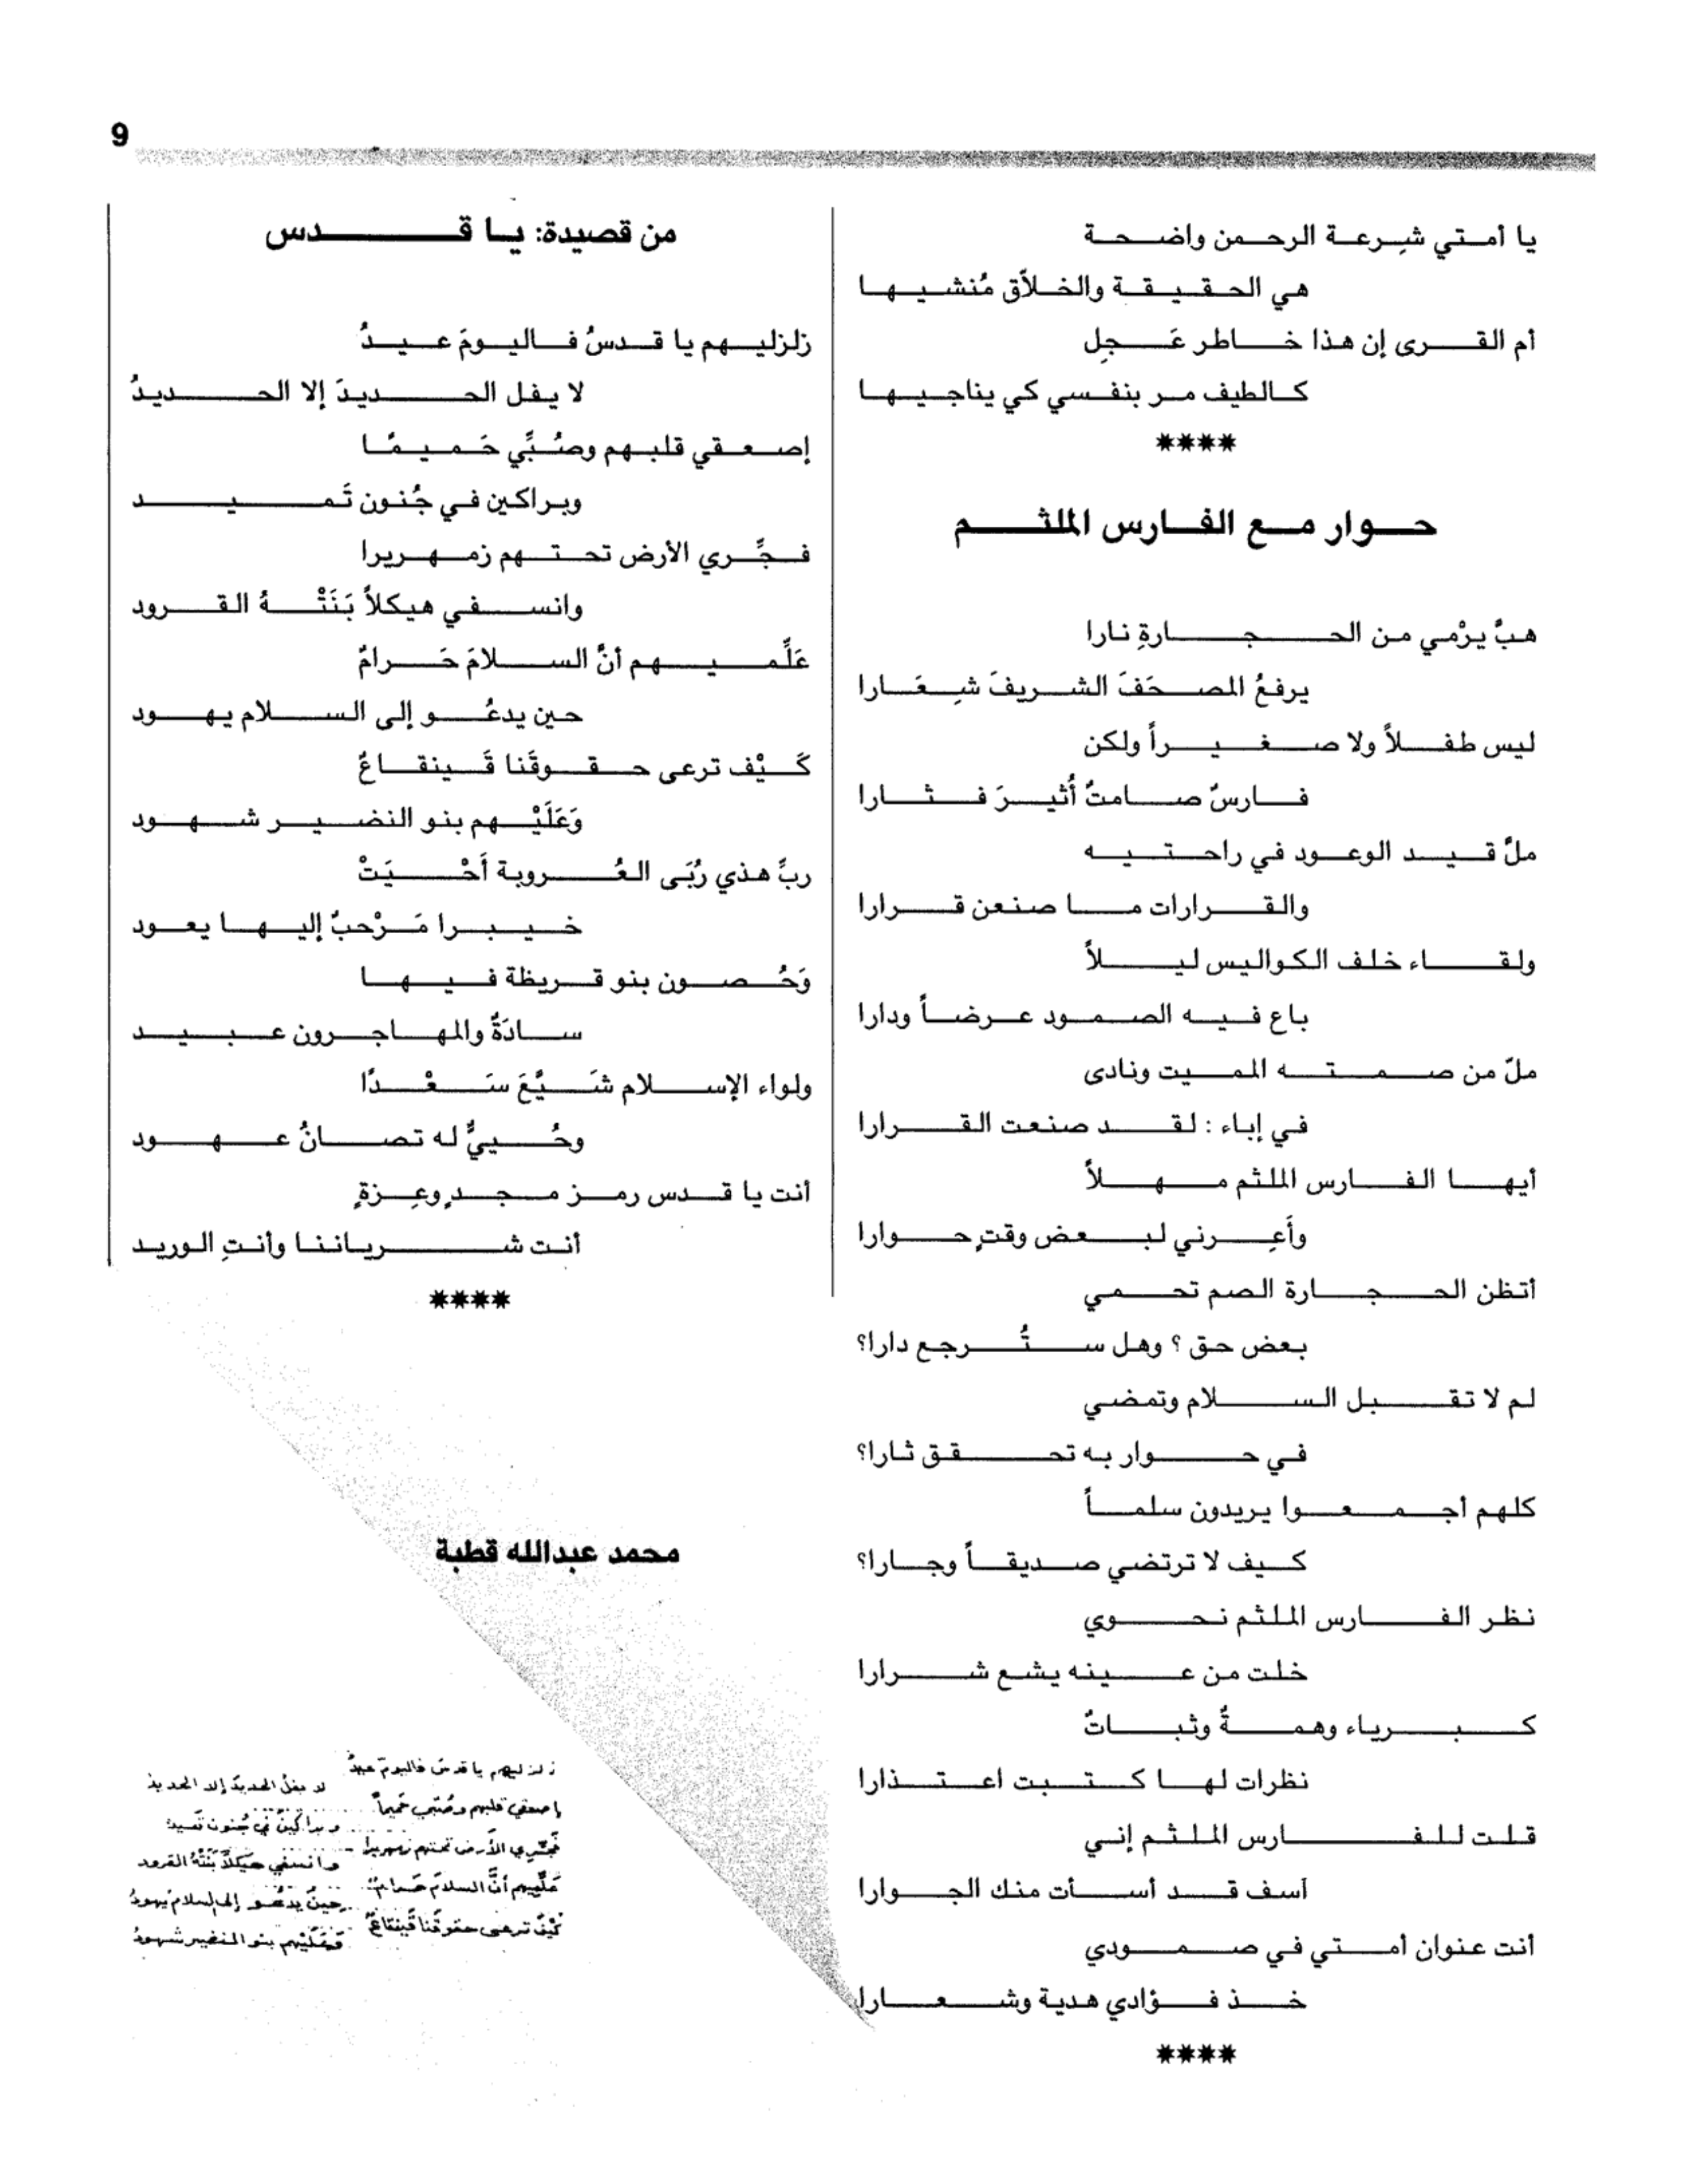 9
يا أمتي شِرعة الرحمن واضحة
هي الحقيقة والخلاّق مُنشيها
أم القرى إن هذا خاطر عَجِل
كالطيف مر بنفسي كي يناجيها
****
حوار مع الفارس الملثم
هبَّ يرْمي من الحجارةِ نارا
يرفعُ المصحَفَ الشريفَ شِعَارا
ليس طفلاً ولا صغيراً ولكن
فارسٌ صامتٌ أُثيرَ فثارا
ملَّ قيد الوعود في راحتيه
والقرارات ما صنعن قرارا
ولقاء خلف الكواليس ليلاً
باع فيه الصمود عرضاً ودارا
ملّ من صمته المميت ونادى
في إباء : لقد صنعت القرارا
أيها الفارس الملثم مهلاً
وأَعِرني لبعض وقتٍ حوارا
أتظن الحجارة الصم تحمي
بعض حق ؟ وهل ستُرجع دارا؟
لم لا تقبل السلام وتمضي
في حوار به تحقق ثارا؟
كلهم أجمعوا يريدون سلماً
كيف لا ترتضي صديقاً وجارا؟
نظر الفارس الملثم نحوي
خلت من عينه يشع شرارا
كبرياء وهمةٌ وثباتٌ
نظرات لها كتبت اعتذارا
قلت للفارس الملثم إني
آسف قد أسأت منك الجوارا
أنت عنوان أمتي في صمودي
خذ فؤادي هدية وشعارا
****
من قصيدة: يا قدس
زلزليهم يا قدسُ فاليومَ عيدُ
لا يفل الحديدَ إلا الحديدُ
إصعقي قلبهم وصُبِّي حَميمًا
وبراكين في جُنون تَميد
فجِّري الأرض تحتهم زمهريرا
وانسفي هيكلاً بَنَتْهُ القرود
عَلِّميهم أنَّ السلامَ حَرامٌ
حين يدعُو إلى السلام يهود
كَيْف ترعى حقوقَنا قَينقاعٌ
وَعَلَيْهم بنو النضير شهود
ربِّ هذي رُبَى العُروبة أَحْيَتْ
خيبرا مَرْحبٌ إليها يعود
وَحُصون بنو قريظة فيها
سادَةٌ والمهاجرون عبيد
ولواء الإسلام شَيَّعَ سَعْدًا
وحُييٌّ له تصانُ عهود
أنت يا قدس رمز مجدٍ وعِزةٍ
أنت شرياننا وأنتِ الوريد
****
محمد عبدالله قطبة
زلزليهم يا قدسُ فاليومَ عيدُ
لا يفلُ الحديدَ إلا الحديدُ
إصعقي قلبهم وصُبِّي حَميماً
وبراكينَ في جُنون تَميدُ
فجِّري الأرض تحتهم زمهريرا
وانسفي هيكلاً بَنَتْهُ القرود
عَلِّميهم أنَّ السلامَ حَرامٌ
حينَ يدعُو إلى السلام يهودُ
كَيْفَ ترعى حقوقَنا قَينقاعٌ
وَعَلَيْهم بنو النضير شهودُ